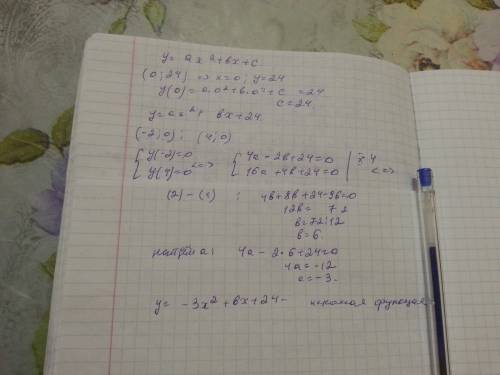 y = ax²+bx+c.
(0;24) => x=0; y=24
y(0)=a·0²+b·0+c =24
c=24
y=ax²+ bx+24
(-2;0); (4;0)
{y(-2)=0 {4a-2b+24=0 | ·4
{y(4)=0 <=> {16a+4b+24=0 <=>
(2) - (1) : 4b+8b+24-96=0
12b= 72
b=72:12
b=6.
найдем a: 4a-2·6+24=0
4a=-12
a=-3.
y= -3x²+6x+24- искомая функция